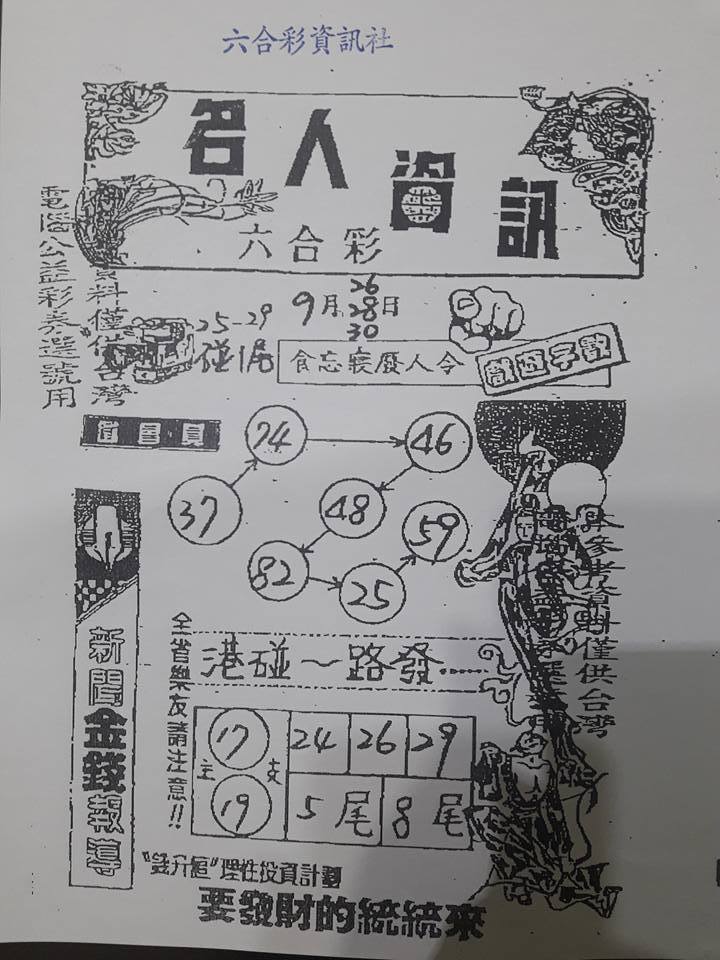 六合彩資訊社
名人資訊
六合彩
9月26 28 30日
25-29
碰 1尾
食忘寢廢人令
數字巡獻
電腦公益彩券選號用
資料僅供台灣
37
74
46
48
82
25
59
新聞金錢報導
全省樂友請注意!!
港碰一路發……
主
支
17
19
24
26
29
5尾
8尾
本參考資料僅供台灣
理性投資計劃
要發財的統統來